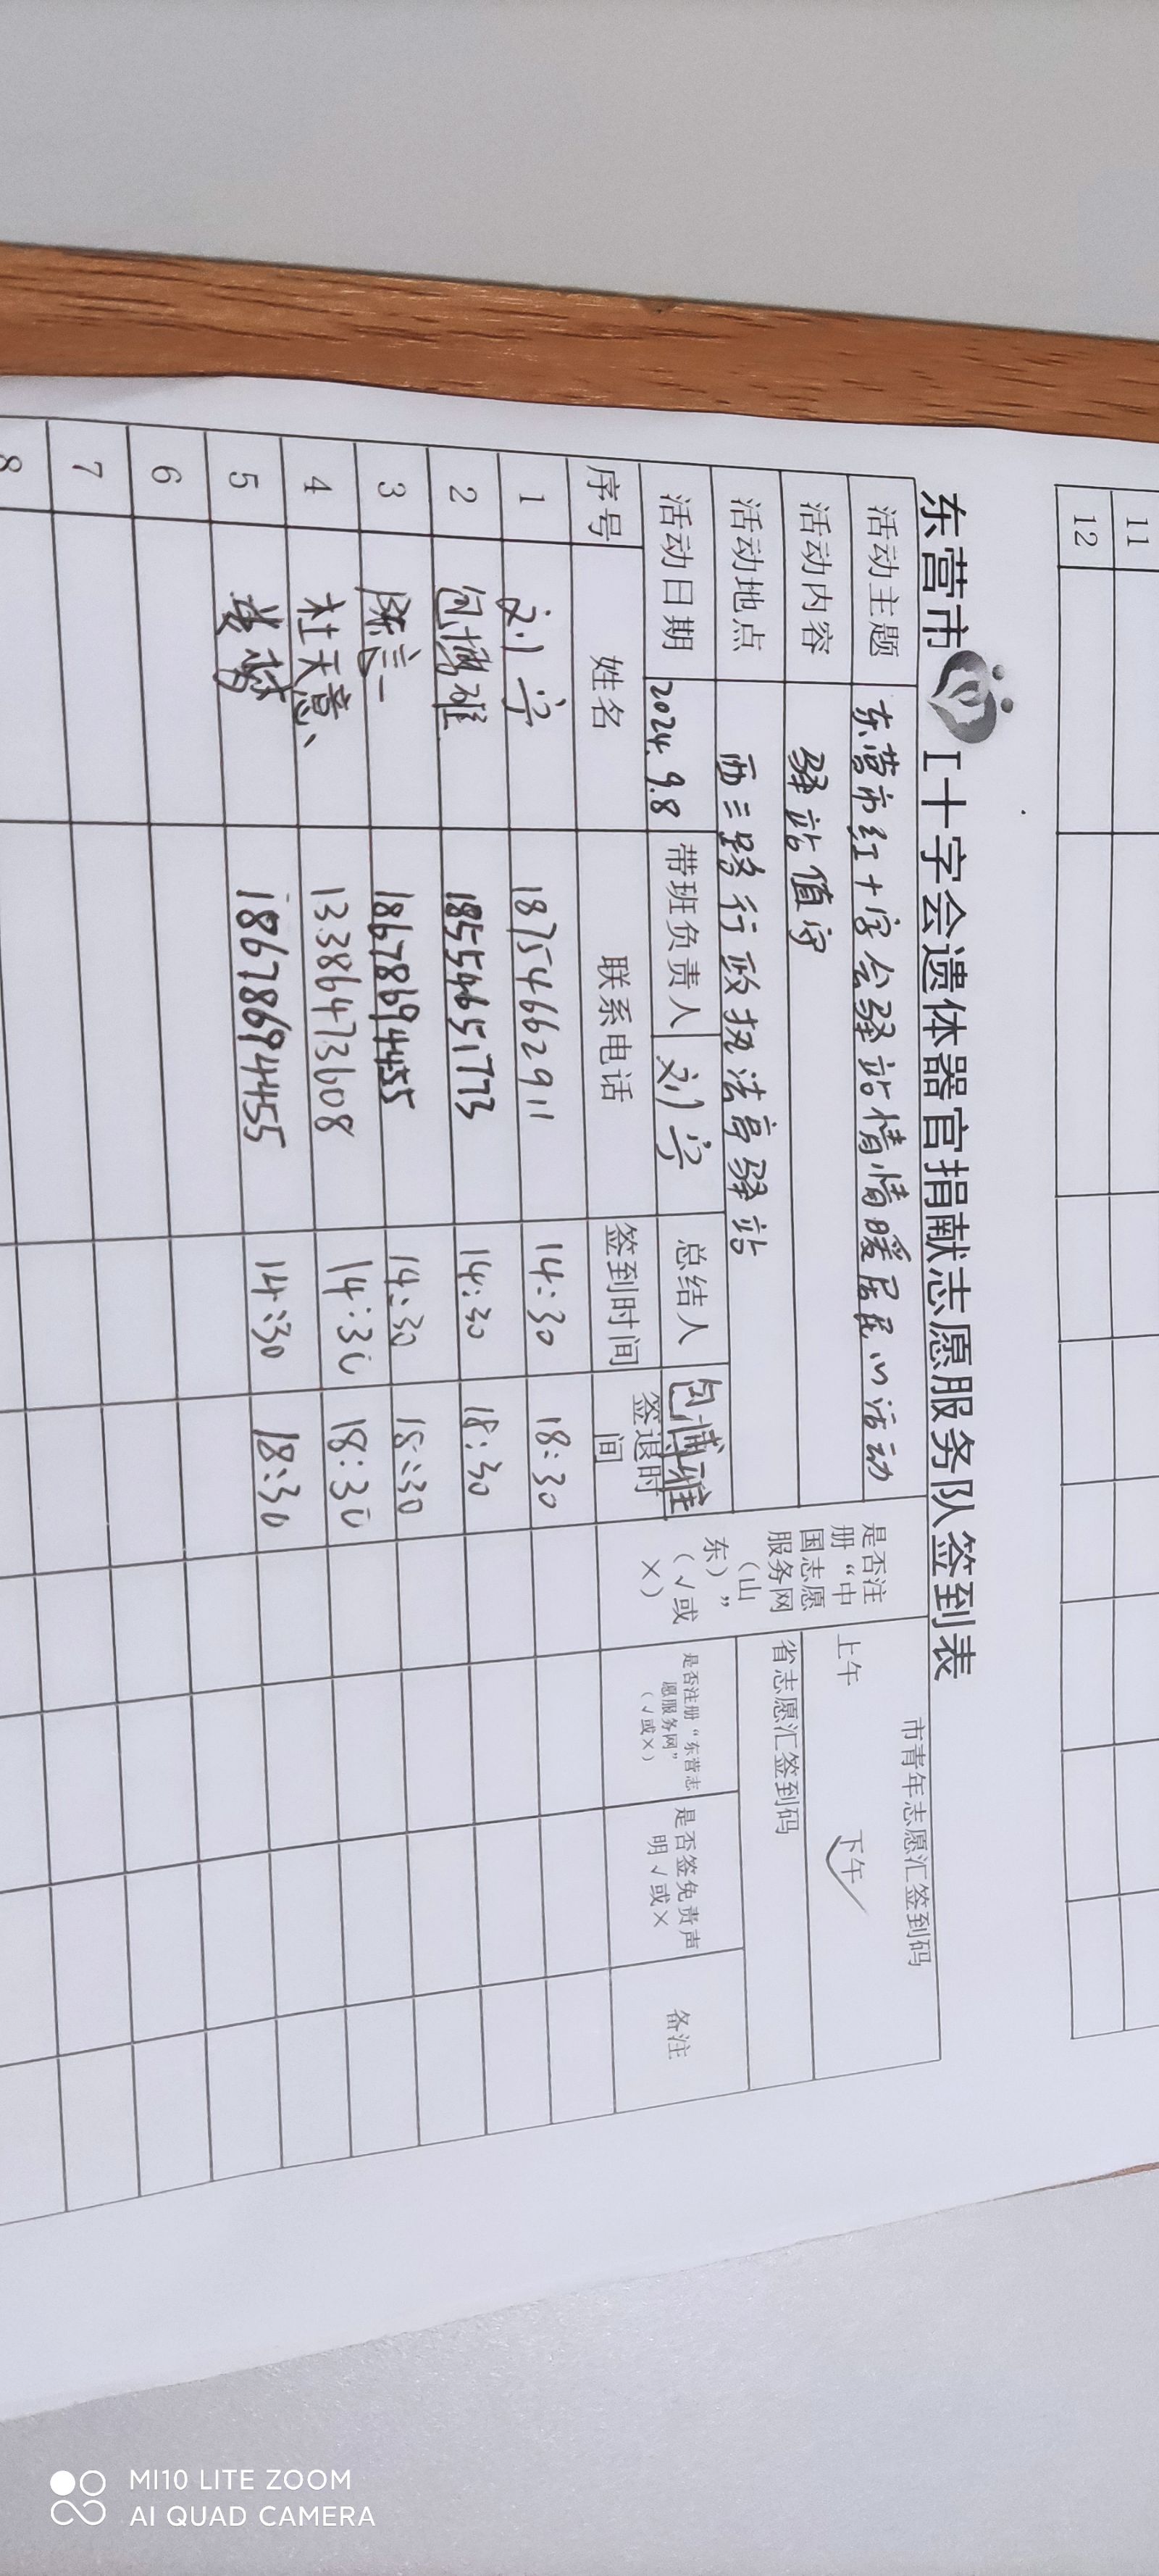 11
12
东营市 工十字会遗体器官捐献志愿服务队签到表
活动主题 东营市红十字会驿站情情暖居民心活动 是否注册“中国志愿服务网(山东)”(√或×) 市青年志愿汇签到码
活动内容 驿站值守 上午 下午√
活动地点 西三路行政执法局驿站 省志愿汇签到码
活动日期 2024.9.8 带班负责人 刘宁 总结人 包博雅
序号 姓名 联系电话 签到时间 签退时间 是否注册“东营志愿服务网”(√或×) 是否签免责声明√或× 备注
1 刘宁 18754662911 14:30 18:30
2 包博雅 18554651773 14:30 18:30
3 18678694455 14:30 18:30
4 杜天意 13386473608 14:30 18:30
5 18678694455 14:30 18:30
6
7
8
MI10 LITE ZOOM
AI QUAD CAMERA